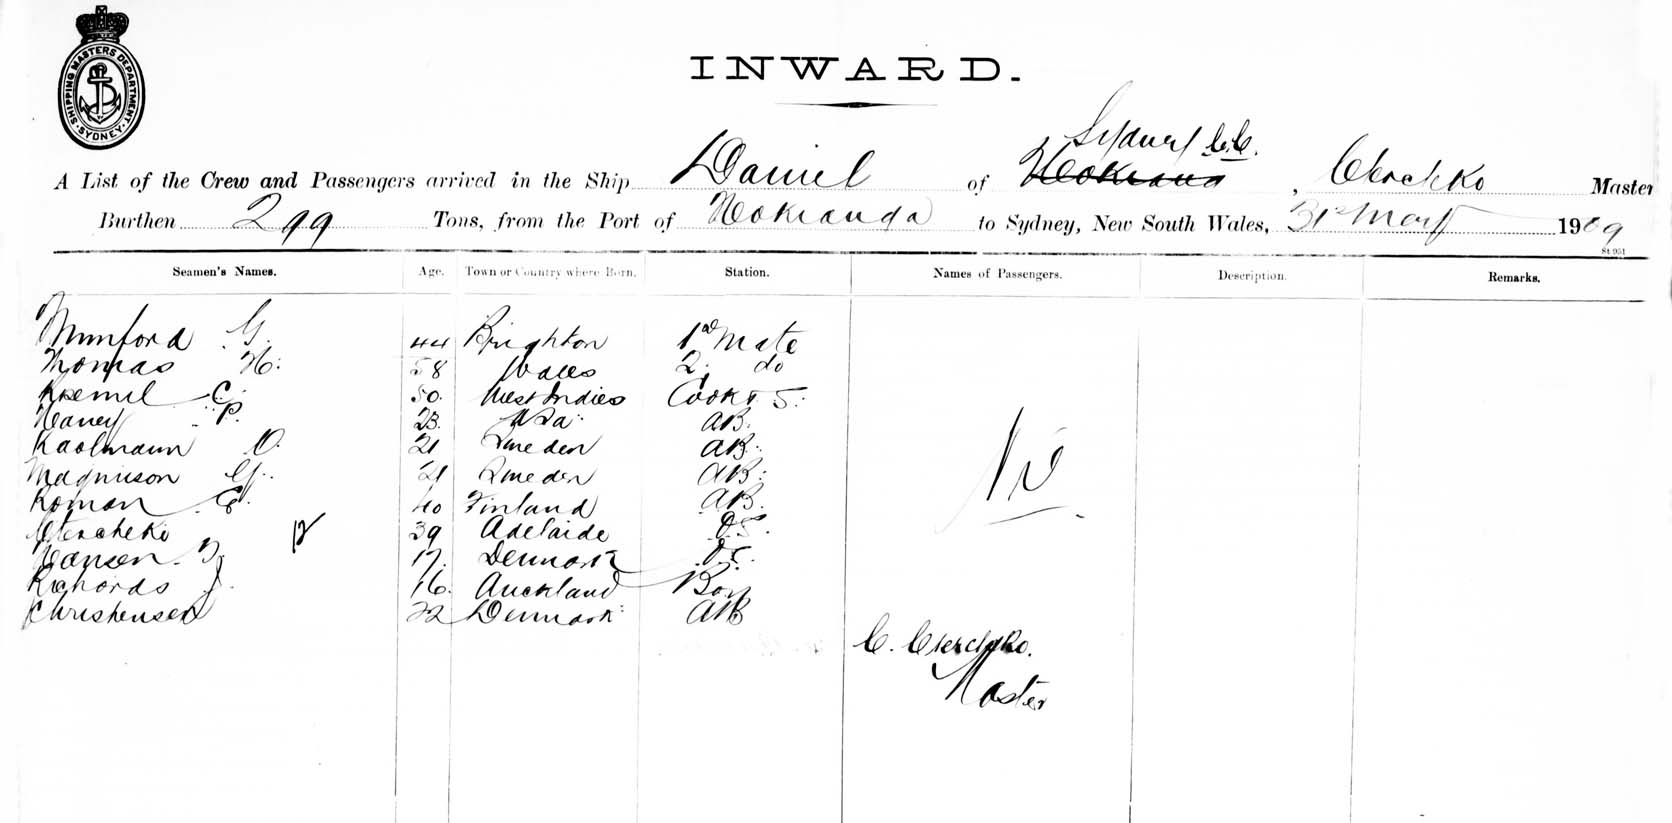 SHIPPING MASTERS DEPARTMENT
SYDNEY
INWARD.
Sydney
A List of the Crew and Passengers arrived in the Ship Daniel of Master
Burthen 299 Tons, from the Port of Hokianga to Sydney, New South Wales, 31st May 1909
St 951
Seamen's Names. Age. Town or Country where Born. Station. Names of Passengers. Description. Remarks.
Mumford G. 44 Brighton 1st Mate
Thomas H. 58 Wales 2. do
C. 50. West Indies Cook & S.
P. 23. AB.
O. 21 Sweden AB.
Magnuson G. 21 Sweden AB.
Roman E. 40 Finland AB.
39 Adelaide OS.
Hansen 17. Denmark OS.
Richards J. 16. Auckland Boy
Christensen 22 Denmark AB
Nil
C.
Master